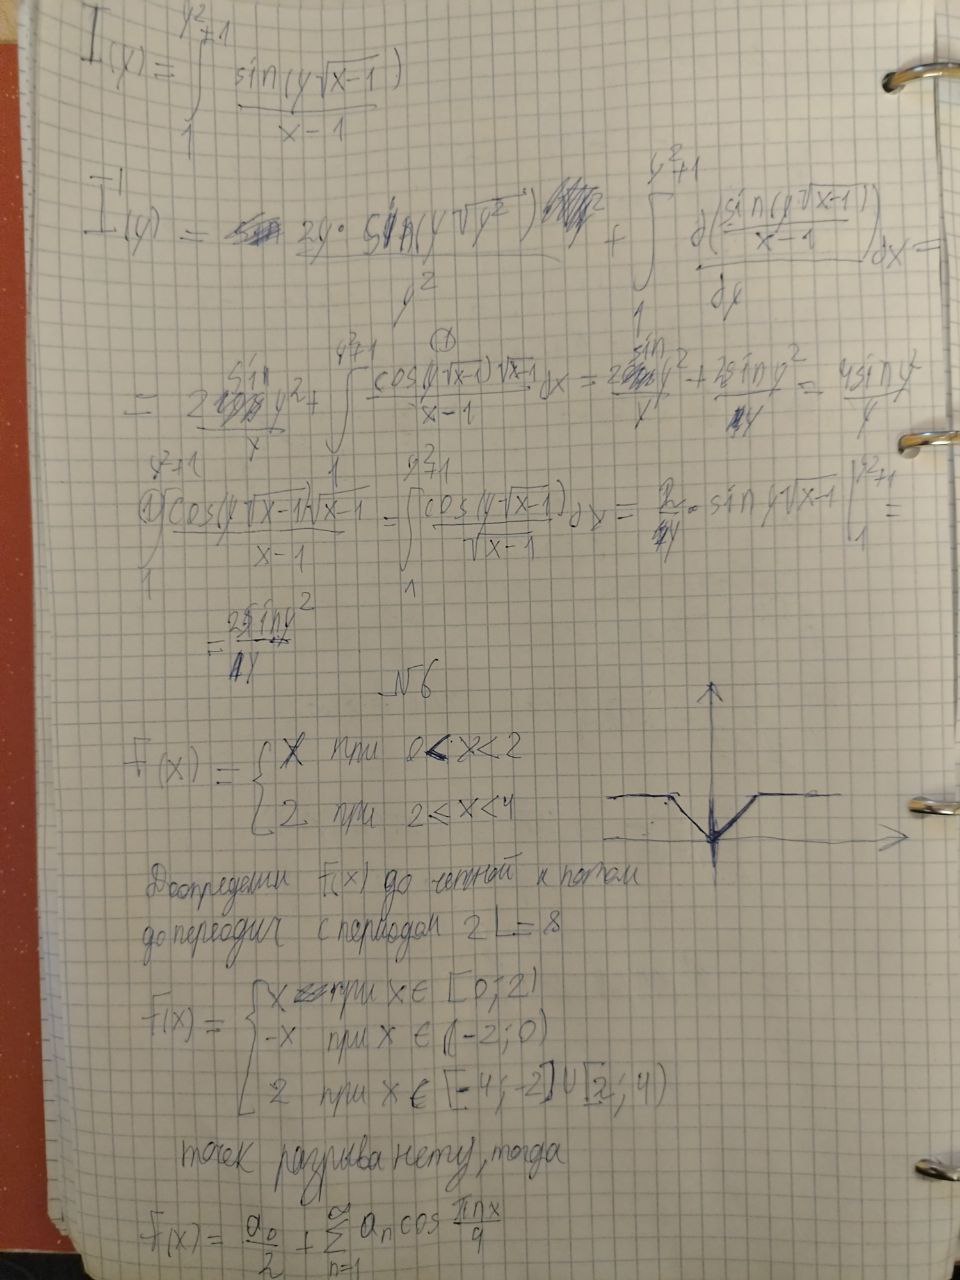 I(y) = ∫_1^{y²+1} sin(y√(x-1)) / (x-1)
I'(y) = 2y · sin(y√(y²)) / y² + ∫_1^{y²+1} d(sin(y√(x-1)) / (x-1)) / dy dx =
= 2 sin y² / y + ∫_1^{y²+1} cos(y√(x-1)) √(x-1) / (x-1) dx = 2 sin y² / y + 2 sin y² / y = 4 sin y² / y
① ∫_1^{y²+1} cos(y√(x-1)) √(x-1) / (x-1) = ∫_1^{y²+1} cos(y√(x-1)) / √(x-1) dx = 2/y · sin y√(x-1) |_1^{y²+1} =
= 2 sin y² / y
№6
F(x) = { x при 0 < x < 2
2 при 2 < x < 4
Доопределим F(x) до четной и потом
до переодич с периодом 2L = 8
F(x) = { x при x ∈ [0; 2)
-x при x ∈ (-2; 0)
2 при x ∈ [-4; -2] ∪ [2; 4)
точек разрыва нету, тогда
F(x) = a₀/2 + ∑_{n=1}^{∞} aₙ cos πnx/4